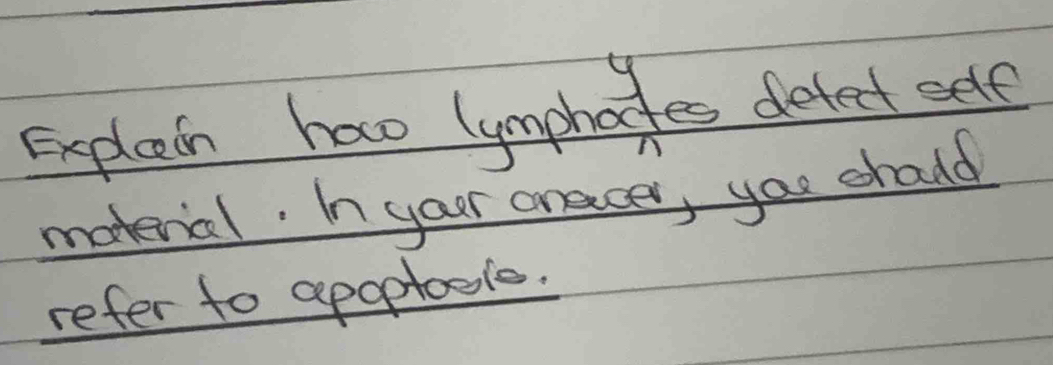 Explain how lymphocytes detect self
material. In your answer, you should
refer to apoptosis.